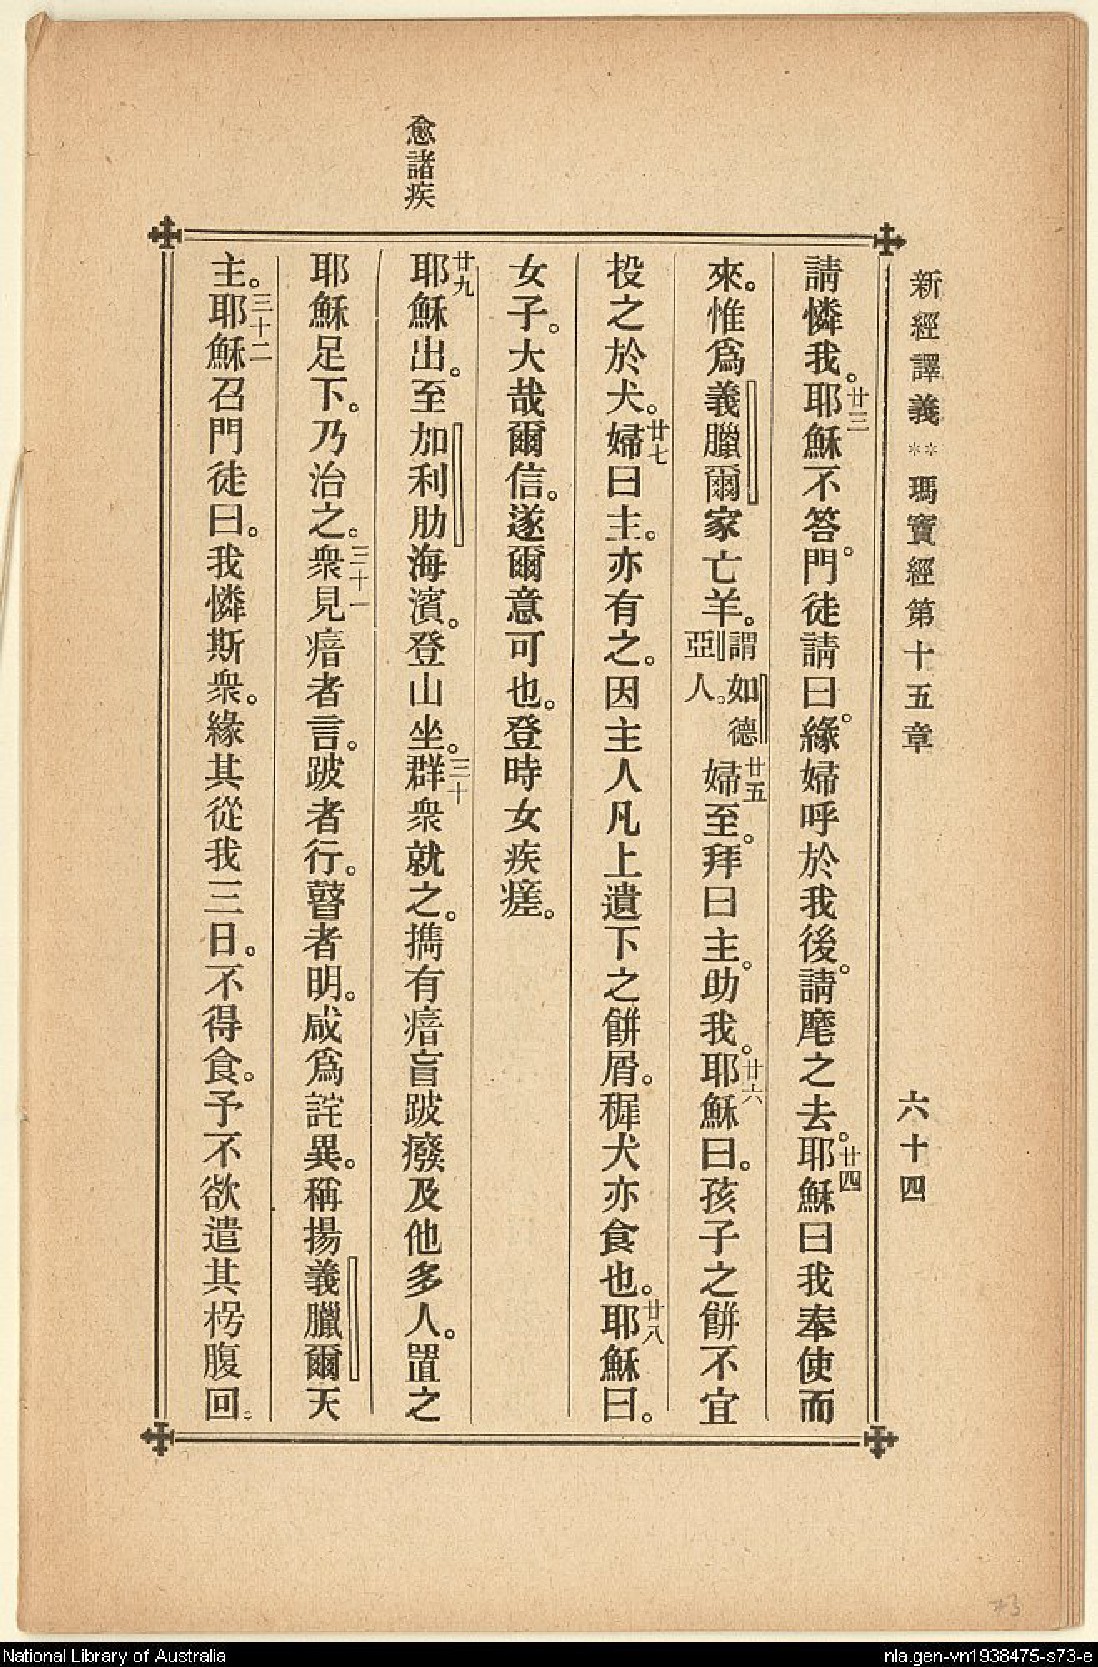 新經譯義**瑪寶經第十五章 六十四
請憐我。廿三耶穌不答。門徒請曰。緣婦呼於我後。請麾之去。廿四耶穌曰我奉使而
來。惟爲義臘爾家亡羊。謂如德亞人。廿五婦至。拜曰主。助我。廿六耶穌曰。孩子之餅不宜
投之於犬。廿七婦曰主。亦有之。因主人凡上遺下之餅屑。穉犬亦食也。廿八耶穌曰。
女子。大哉爾信。遂爾意可也。登時女疾瘥。
愈諸疾
廿九耶穌出。至加利肋海濱。登山坐。三十群衆就之。擕有瘖盲跛癈及他多人。置之
耶穌足下。乃治之。三十一衆見瘖者言。跛者行。瞽者明。咸爲詫異。稱揚義臘爾天
主。三十二耶穌召門徒曰。我憐斯衆。緣其從我三日。不得食。予不欲遣其枵腹回。
National Library of Australia
nla.gen-vn1938475-s73-e